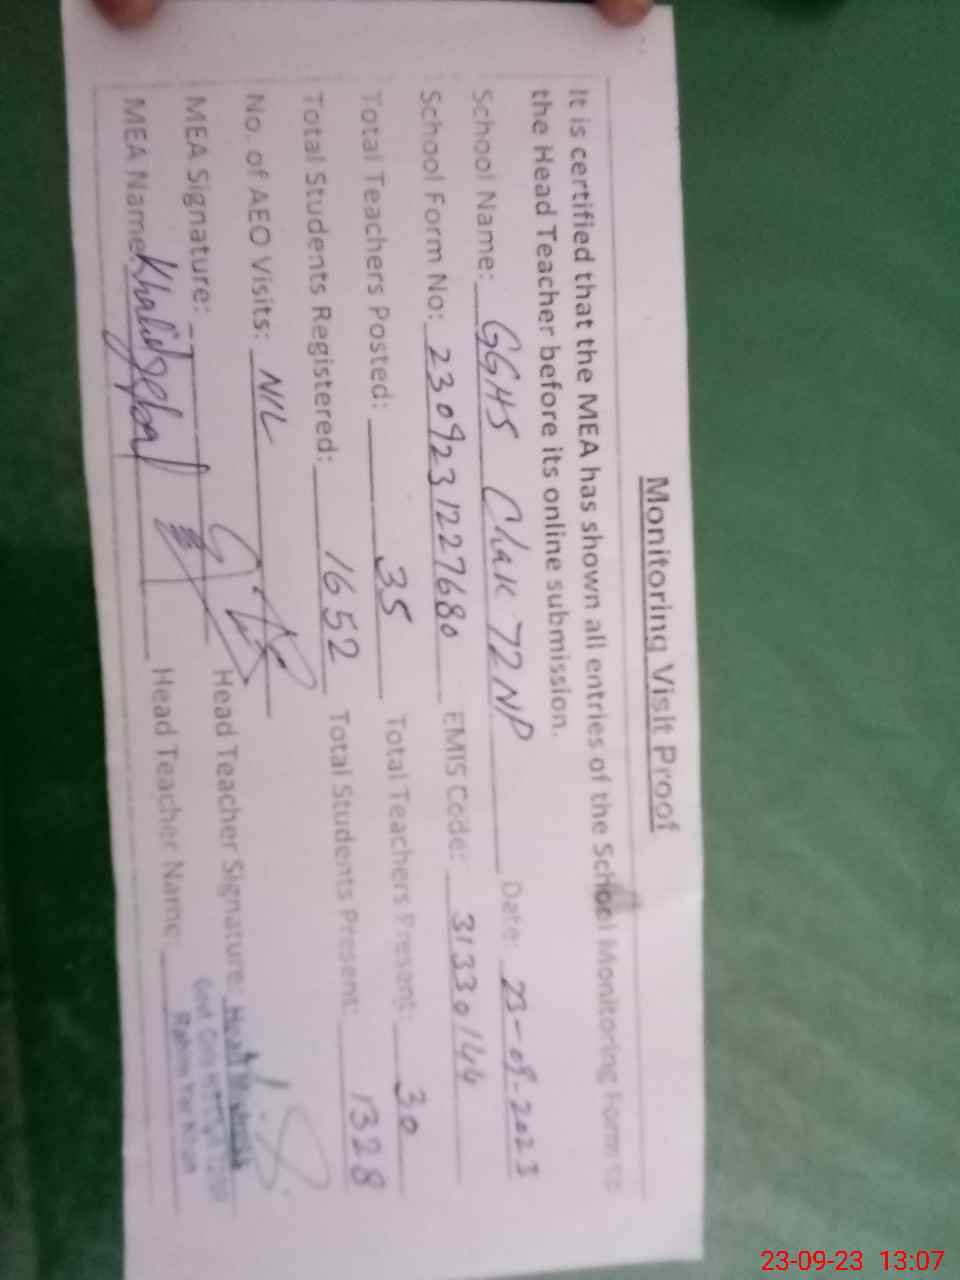 Monitoring Visit Proof
It is certified that the MEA has shown all entries of the School Monitoring Form to
the Head Teacher before its online submission.
School Name: GGHS Chak 72NP Date: 23-09-2023
School Form No: 2309231227680 EMIS Code: 31330144
Total Teachers Posted: 35 Total Teachers Present: 30
Total Students Registered: 1652 Total Students Present: 1328
No. of AEO Visits: NIL
MEA Signature: Head Teacher Signature: Head
MEA Name: Khalid Head Teacher Name:
Rahim Yar Khan
23-09-23 13:07